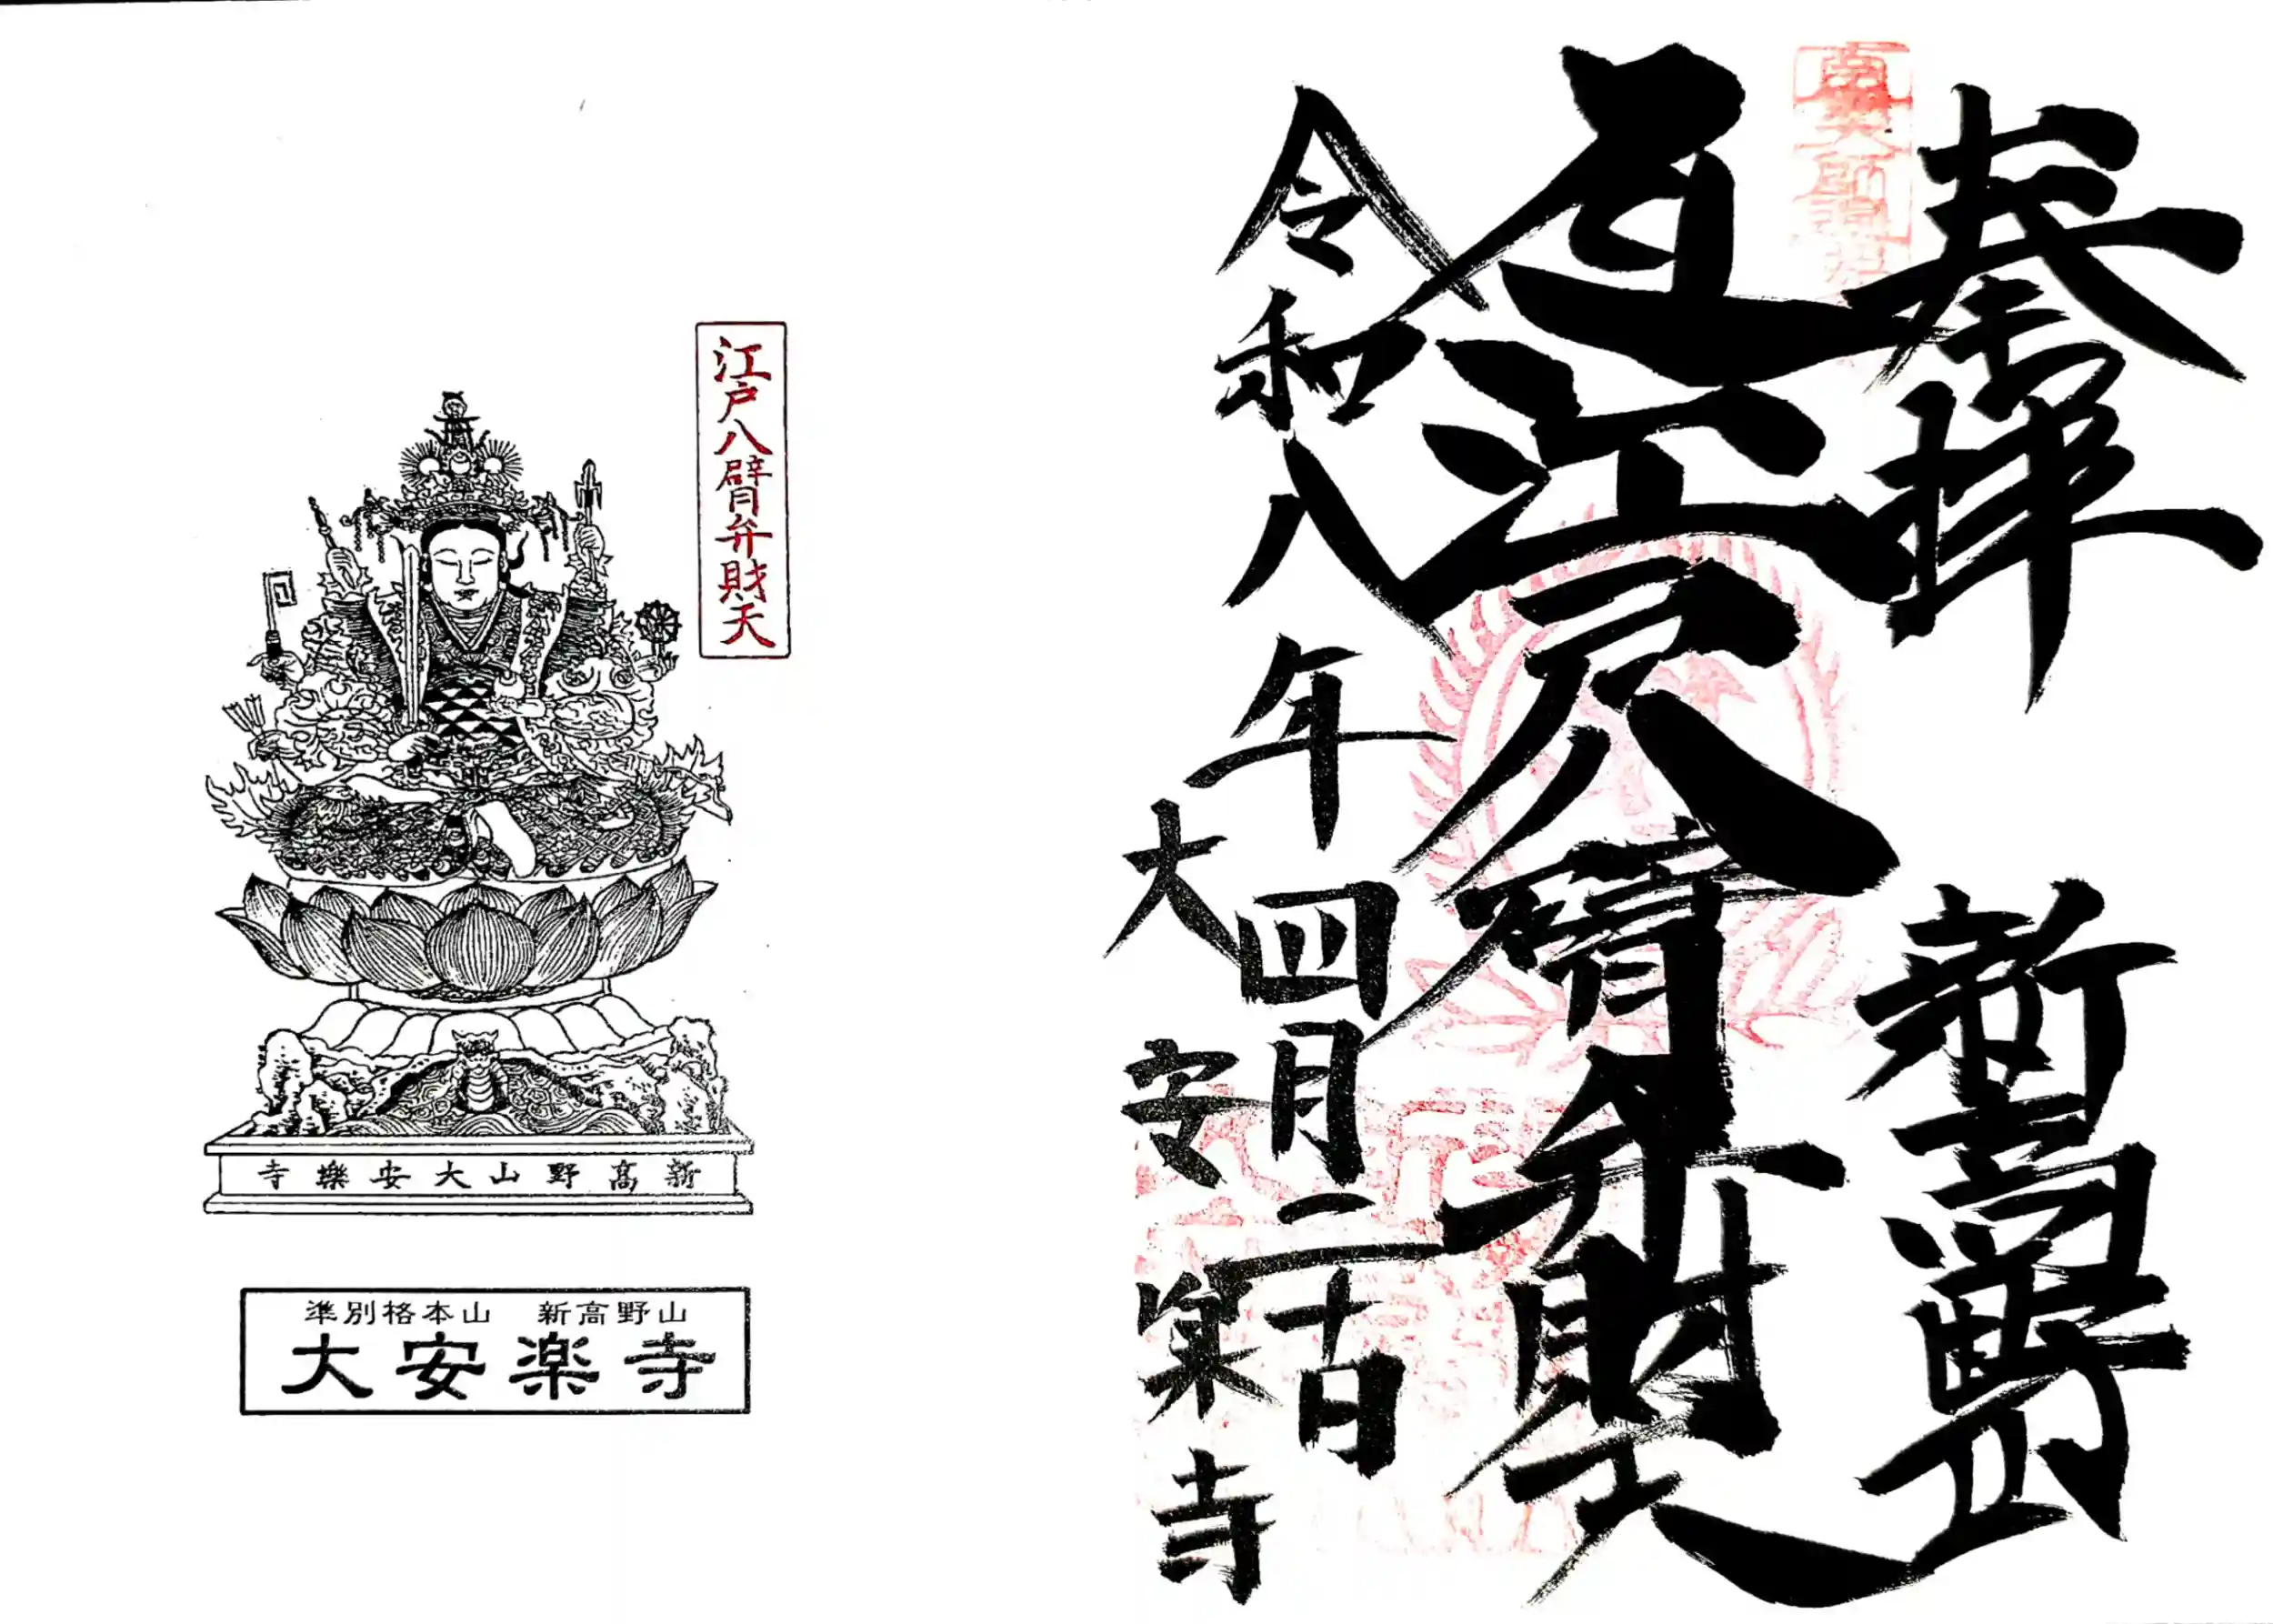 奉拝
新高野山
江戸八臂弁財天
令和八年四月二十日
大安楽寺
江戸八臂弁財天
新髙野山大安樂寺
準別格本山　新高野山
大安楽寺